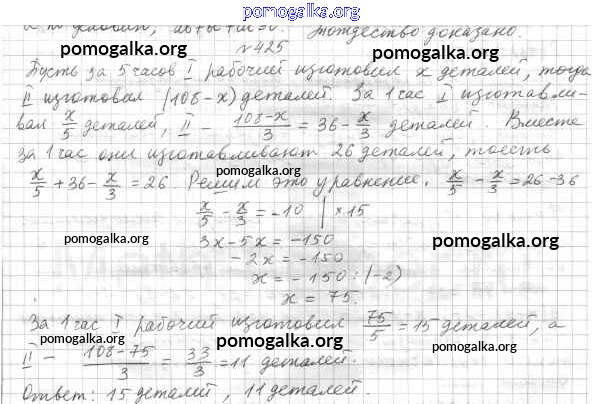 pomogalka.org
pomogalka.org pomogalka.org
по условию, Тождество доказано.
N 425
Пусть за 5 часов I рабочий изготовил x деталей, тогда
II изготовил (108-x) деталей. За 1 час I изготавли-
вал x/5 деталей, II - (108-x)/3 = 36 - x/3 деталей. Вместе
за 1 час они изготавливают 26 деталей, то есть
x/5 + 36 - x/3 = 26. Решим это уравнение. x/5 - x/3 = 26-36
x/5 - x/3 = -10 | × 15
3x - 5x = -150
pomogalka.org pomogalka.org
-2x = -150
x = -150 : (-2)
x = 75.
За 1 час I рабочий изготовил 75/5 = 15 деталей, а
II - (108-75)/3 = 33/3 = 11 деталей.
pomogalka.org pomogalka.org
Ответ: 15 деталей, 11 деталей.